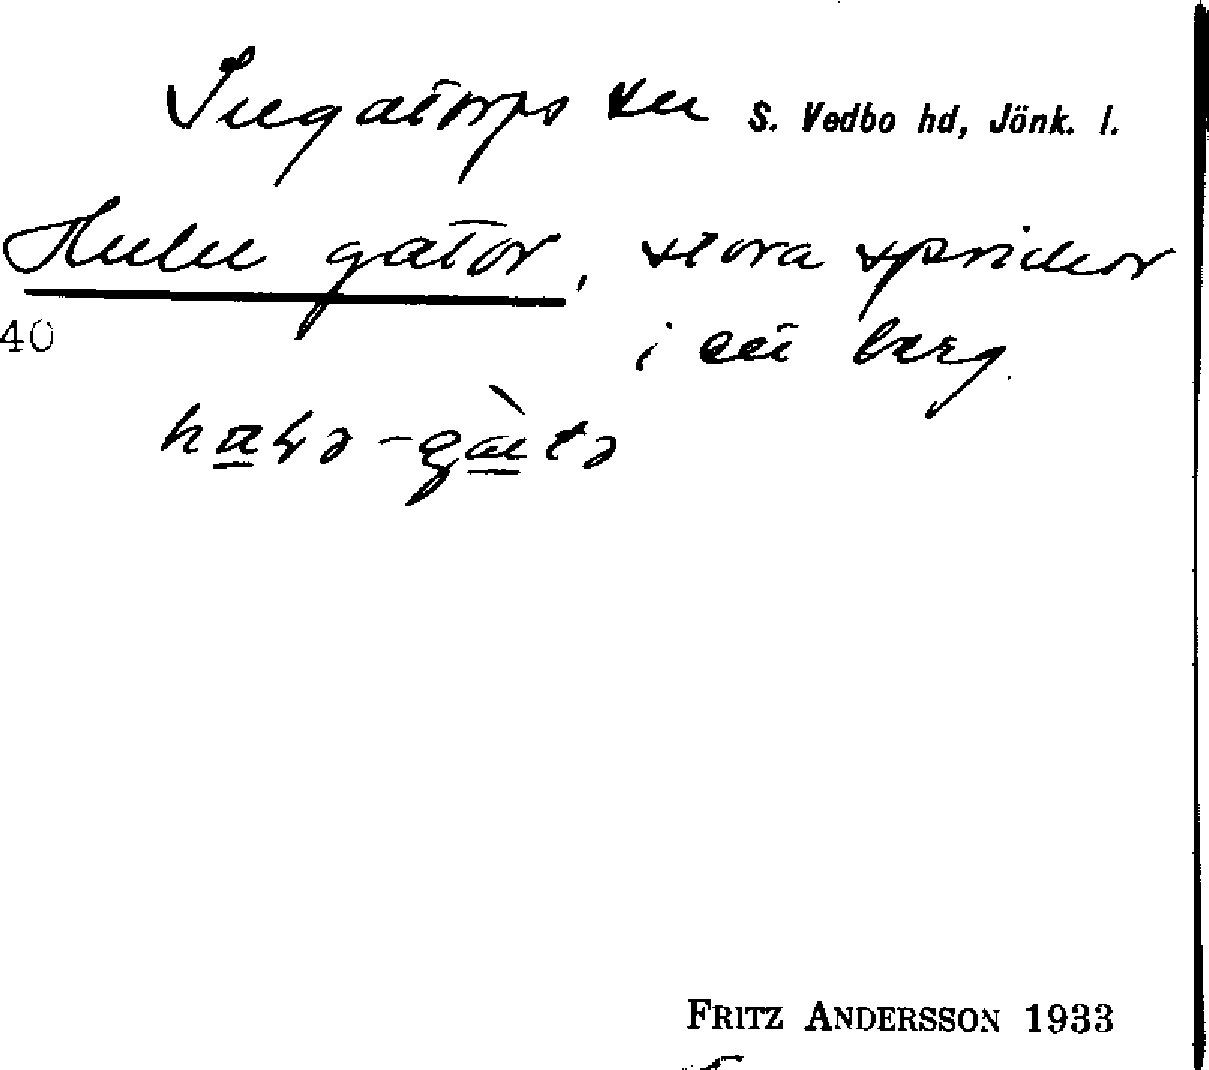 Ingatorps sn S. Vedbo hd, Jönk. l.
Hulu gator, stora sprickor
40
i ett berg
FRITZ ANDERSSON 1933